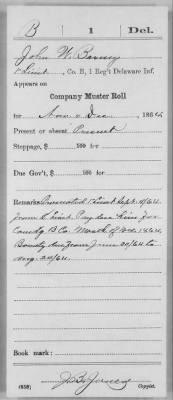 B 1 Del.
John W. Barney
1 Lieut, Co. B, 1 Reg't Delaware Inf.
Appears on
Company Muster Roll
for Nov & Dec, 1864
Present or absent Present
Stoppage, $ 100 for
Due Gov't, $ 100 for
Remarks: Promoted 1 Lieut Sept. 4/64
from 2 Lieut. Pay due him for
Comdg B Co. Month of Dec 1864
from June 30/64 to
Aug. 30/64.
Book mark:
(858) Copyist.